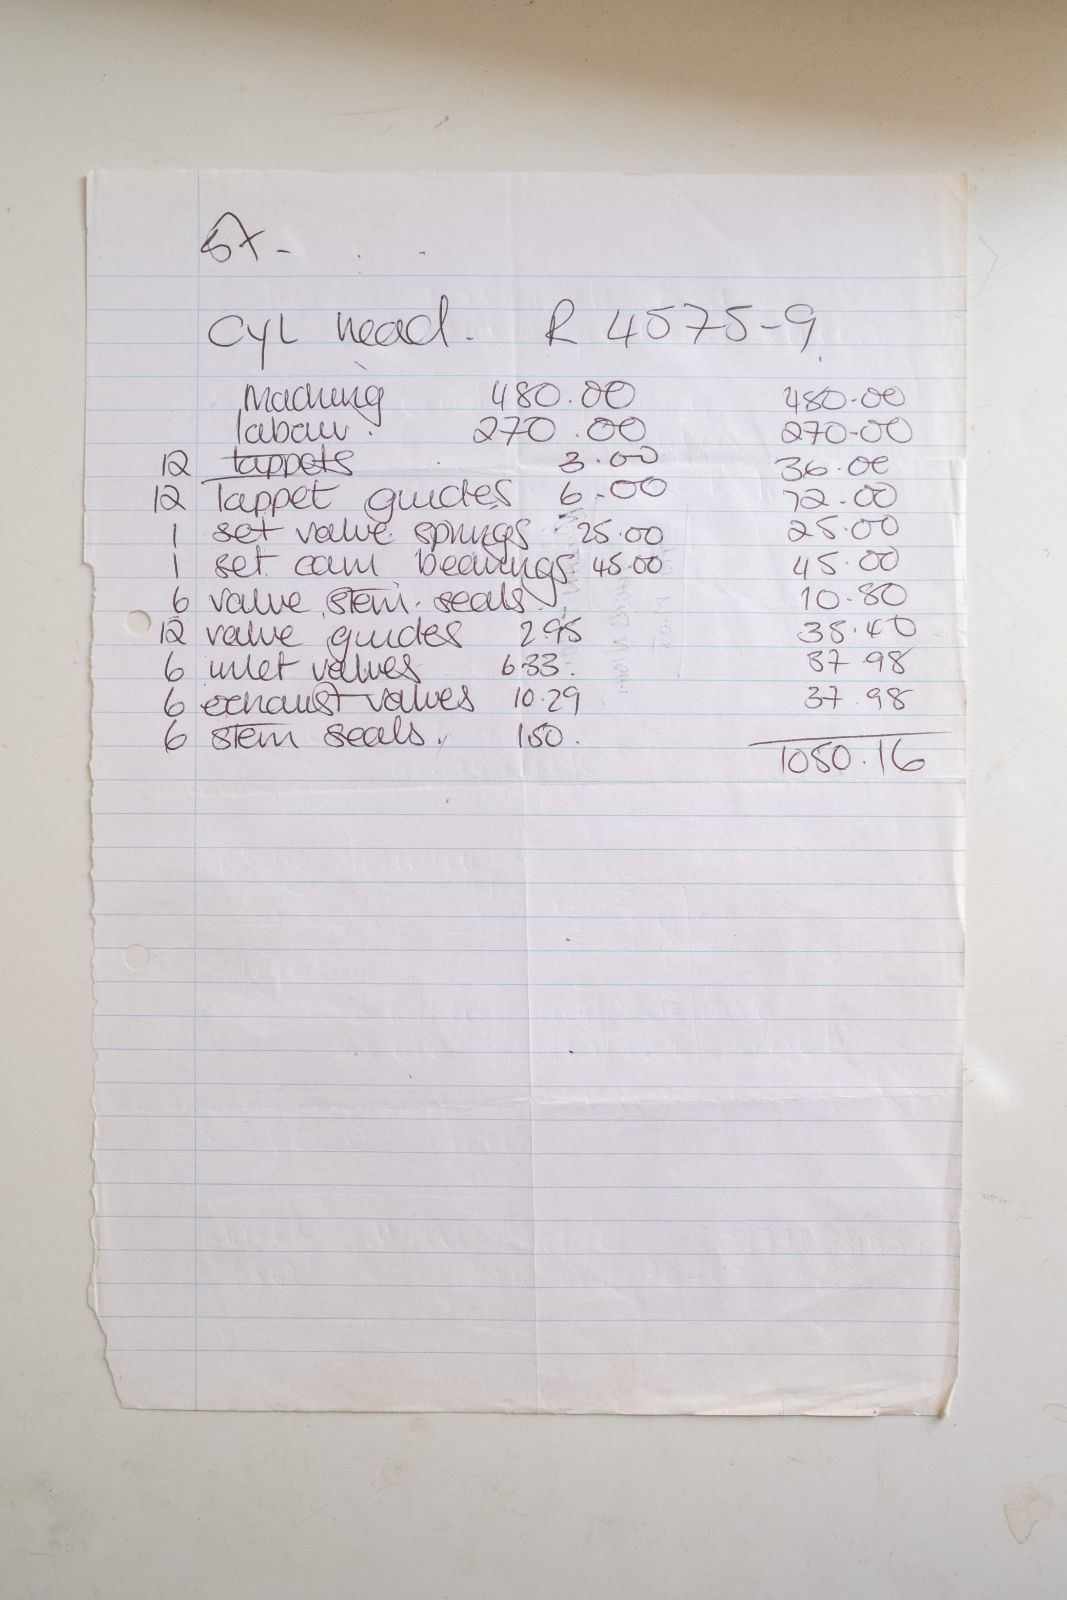 Cyl head. R 4575-9
Maching 480.00 480-00
labour. 270.00 270-00
12 tappets 3.00 36.00
12 Tappet guides 6-00 72.00
1 set valve springs 25.00 25.00
1 set cam bearings 45.00 45.00
6 valve stem seals 10.80
12 valve guides 2.95 35.40
6 inlet valves 6.33. 37.98
6 exhaust valves 10.29 37.98
6 stem seals. 150.
1050.16